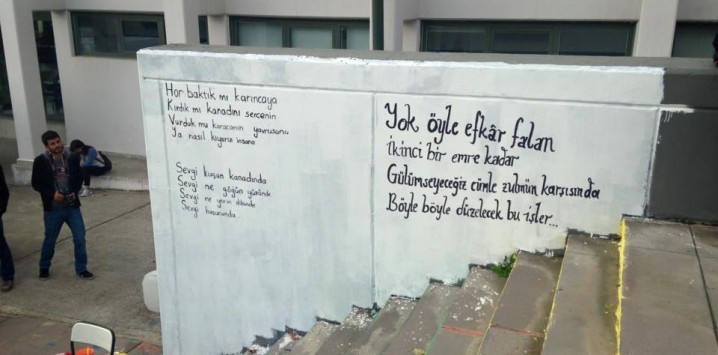 Hor baktık mı karıncaya
Kırdık mı kanadını serçenin
Vurduk mu karacanın yavrusunu
Ya nasıl kıyarız insana
Sevgi kuşun kanadında
Sevgi ne göğün yüzünde
Sevgi ne yerin dibinde
Sevgi başucunda
Yok öyle efkâr falan
İkinci bir emre kadar
Gülümseyeceğiz cümle zulmün karşısında
Böyle böyle düzelecek bu işler...